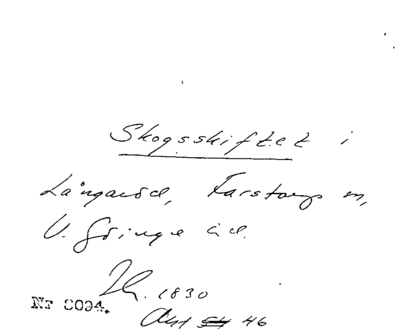 Skogsskiftet i
Långaröd, Farstorps m,
V. Göinge hd.
1830
Nr 8094.
Akt 46